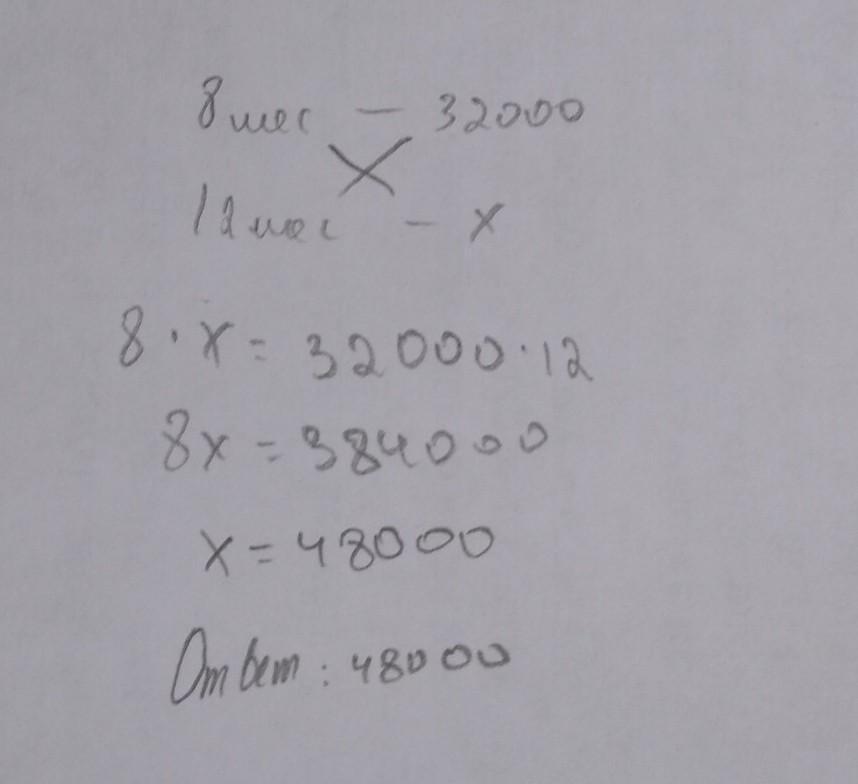 8 мес – 32000
12 мес – x
8 · x = 32000 · 12
8x = 384000
x = 48000
Ответ: 48000